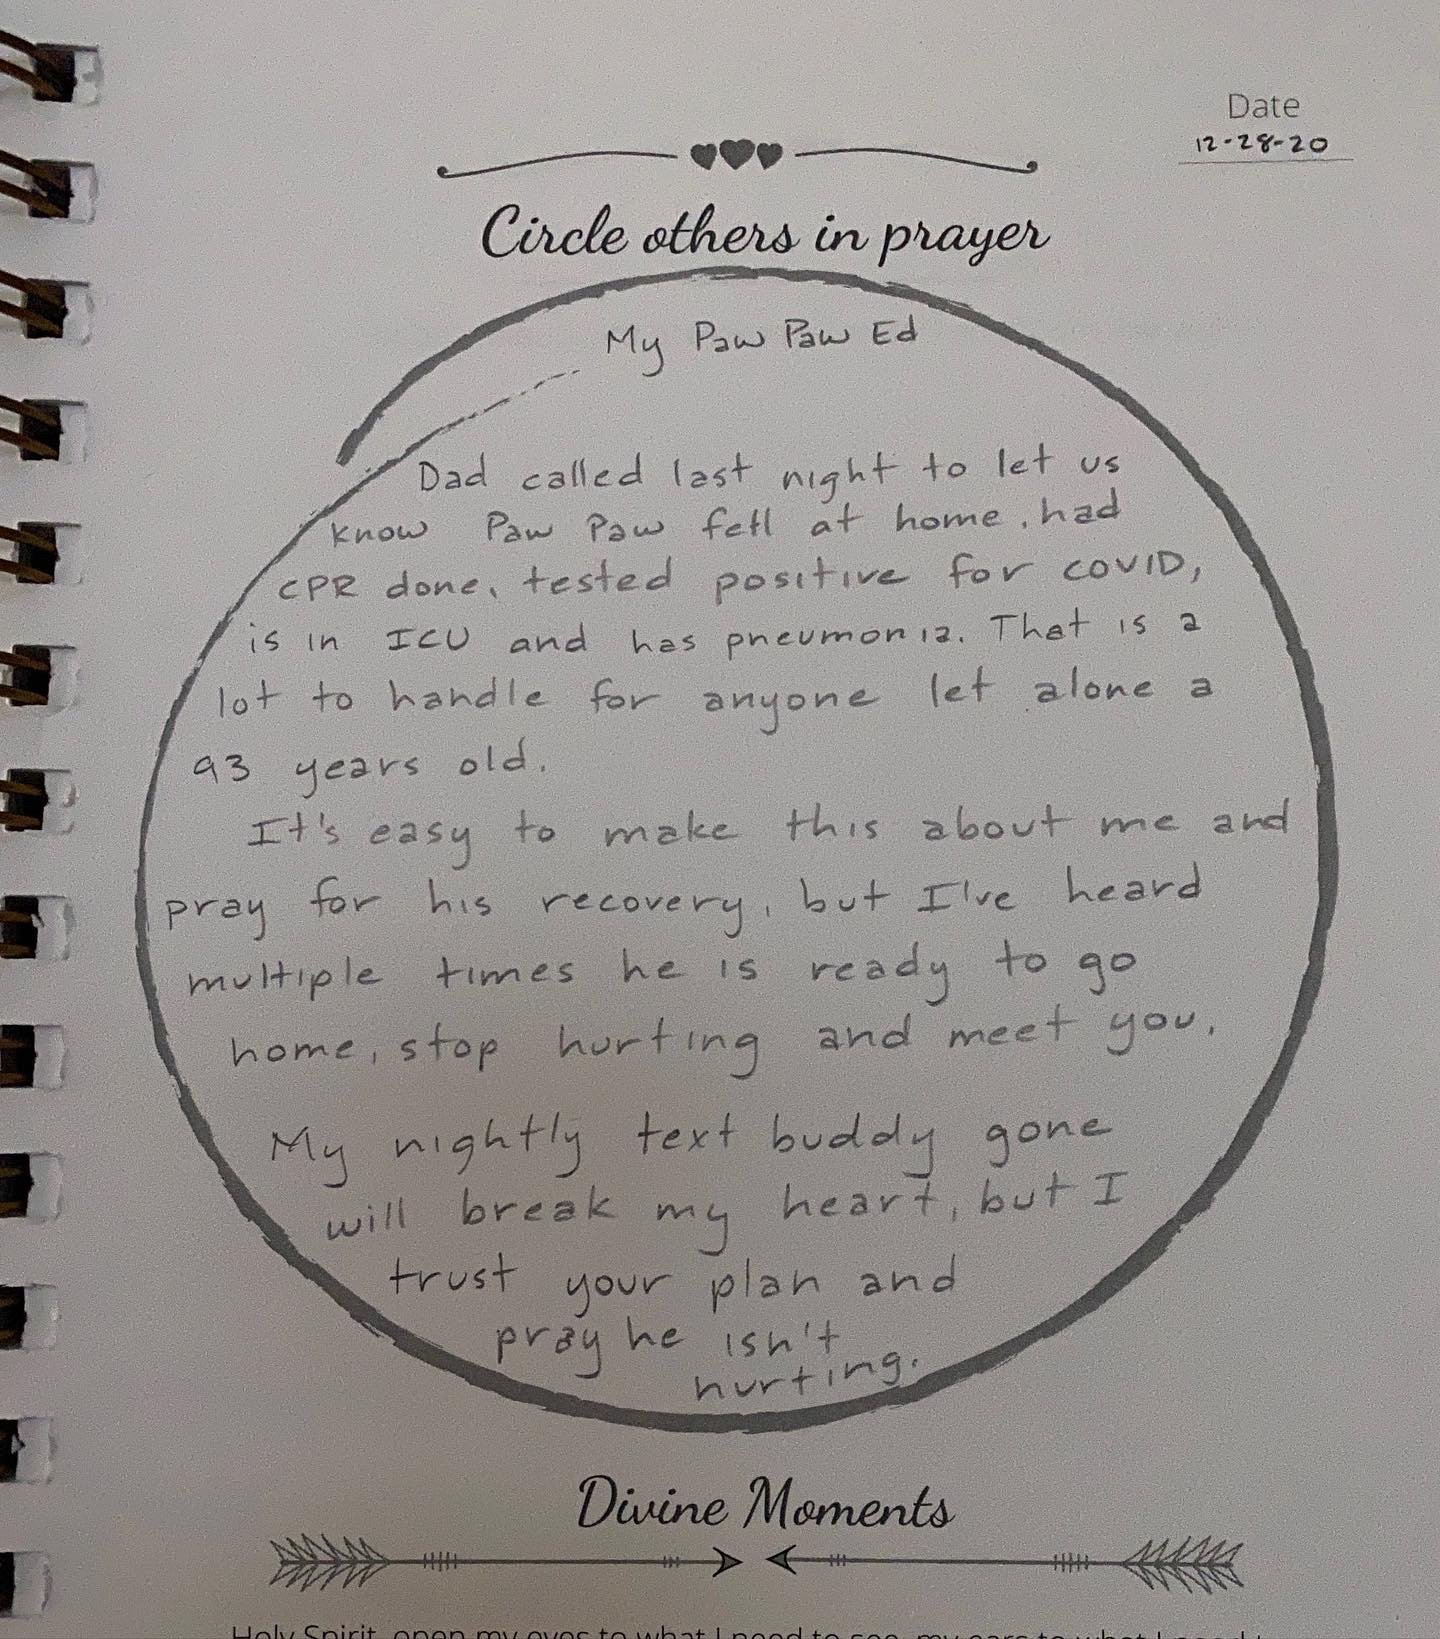 Date
12-28-20
Circle others in prayer
My Paw Paw Ed
Dad called last night to let us
know Paw Paw fell at home, had
CPR done, tested positive for COVID,
is in ICU and has pneumonia. That is a
lot to handle for anyone let alone a
93 years old.
It's easy to make this about me and
pray for his recovery, but I've heard
multiple times he is ready to go
home, stop hurting and meet you.
My nightly text buddy gone
will break my heart, but I
trust your plan and
pray he isn't
hurting.
Divine Moments
Holy Spirit, open my eyes to what I need to see, my ears to what I need t